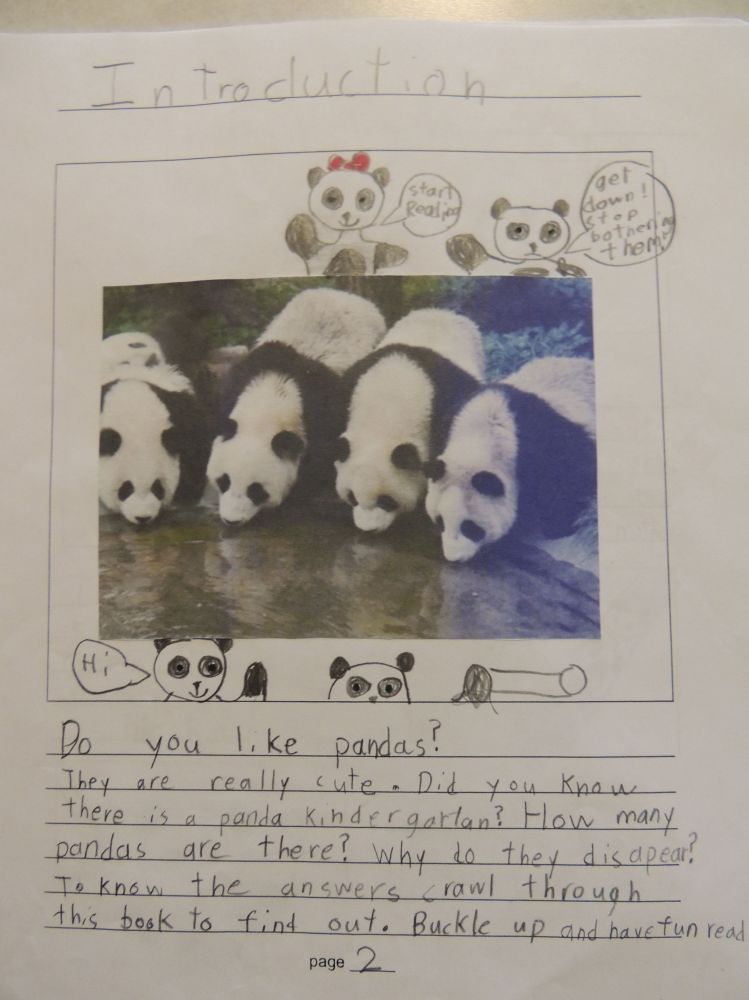 Introduction
start
Reading
get
down!
stop
bothering
them!
Hi
Do you like pandas?
They are really cute. Did you know
there is a panda kindergartan? How many
pandas are there? Why do they disapear?
To know the answers crawl through
this book to find out. Buckle up and have fun read
page 2